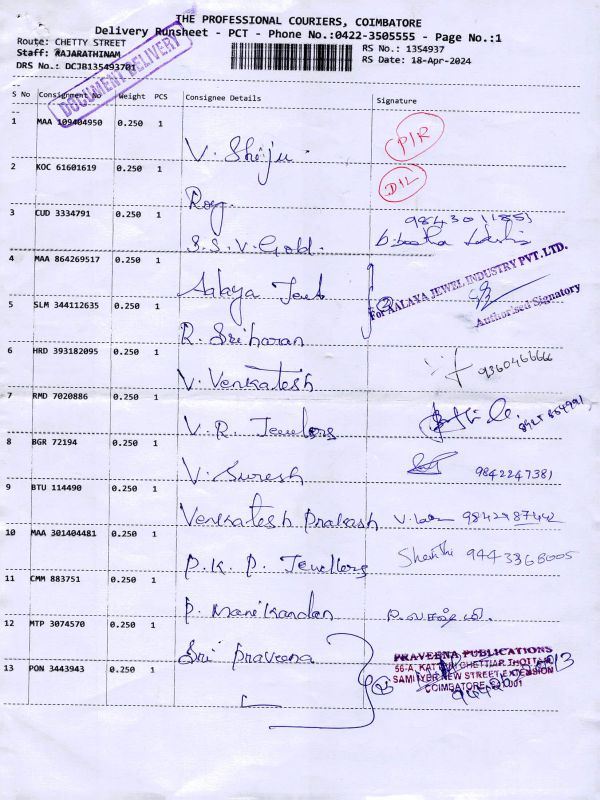 THE PROFESSIONAL COURIERS, COIMBATORE
Delivery Runsheet - PCT - Phone No.:0422-3505555 - Page No.:1
Route: CHETTY STREET
RS No.: 1354937
Staff: RAJARATHINAM
RS Date: 18-Apr-2024
DRS No.: DCJB135493701
DOCUMENT DELIVERY
S No Consignment No Weight PCS Consignee Details Signature
1 MAA 109404950 0.250 1 V. Shiju P/R
2 KOC 61601619 0.250 1 Roy D/L
3 CUD 3334791 0.250 1 S.S.V. Gold
4 MAA 864269517 0.250 1 Aalaya Jewel
For AALAYA JEWEL INDUSTRY PVT. LTD.
Authorised Signatory
5 SLM 344112635 0.250 1 R. Sriharan
6 HRD 393182095 0.250 1 V. Venkatesh 9360466666
7 RMD 7020886 0.250 1 V. R. Jewellers
8 BGR 72194 0.250 1 V. Suresh 9842247381
9 BTU 114490 0.250 1 Venkatesh Prakash 9842987442
10 MAA 301404481 0.250 1 P. K. P. Jewellers Shanthi 9443368005
11 CMM 883751 0.250 1 P. Manikandan
12 MTP 3074570 0.250 1 Sri Praveena
13 PON 3443943 0.250 1
PRAVEENA PUBLICATIONS
56-A, KATTHI CHETTIAR THOTTAM
SAMI IYER NEW STREET EXTENSION
COIMBATORE